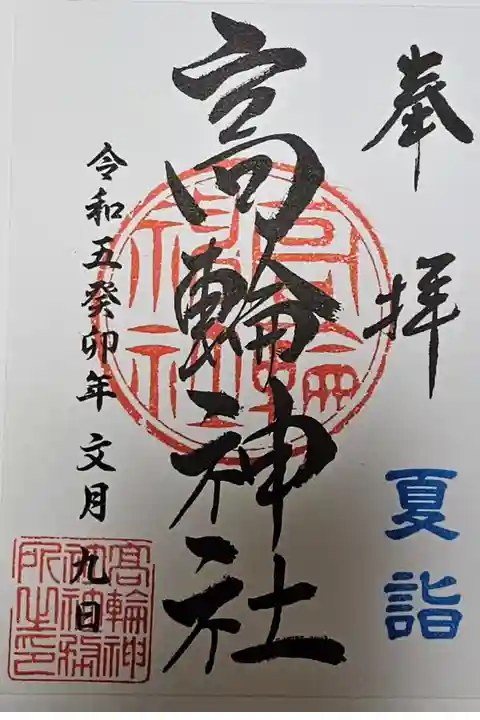 奉拝
夏詣
高輪神社
高輪
神社
令和五癸卯年 文月
九日
高輪神
社神務
所之印